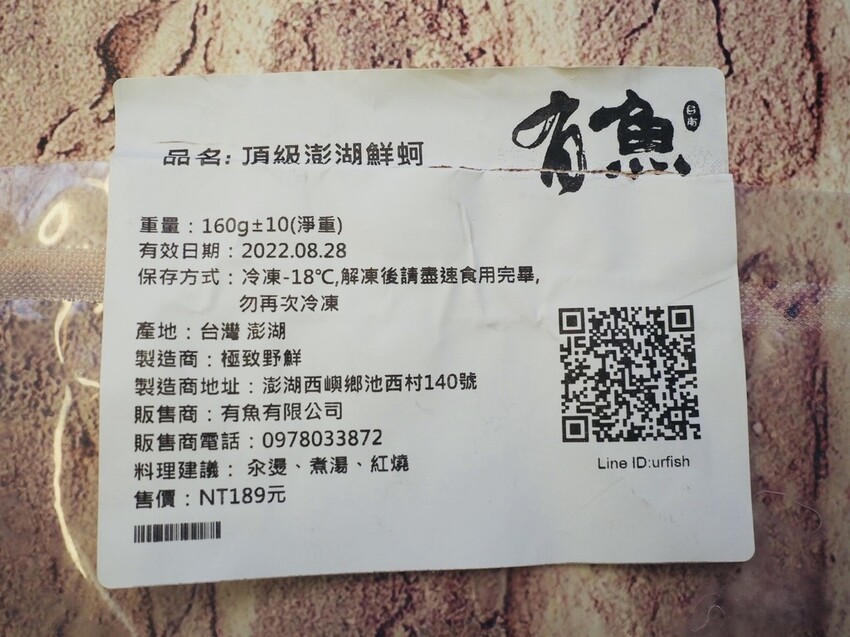 有魚
台南
品名: 頂級澎湖鮮蚵
重量：160g±10(淨重)
有效日期：2022.08.28
保存方式：冷凍-18℃,解凍後請盡速食用完畢,
勿再次冷凍
產地：台灣 澎湖
製造商：極致野鮮
製造商地址：澎湖西嶼鄉池西村140號
販售商：有魚有限公司
販售商電話：0978033872
料理建議： 汆燙、煮湯、紅燒
售價：NT189元
Line ID:urfish